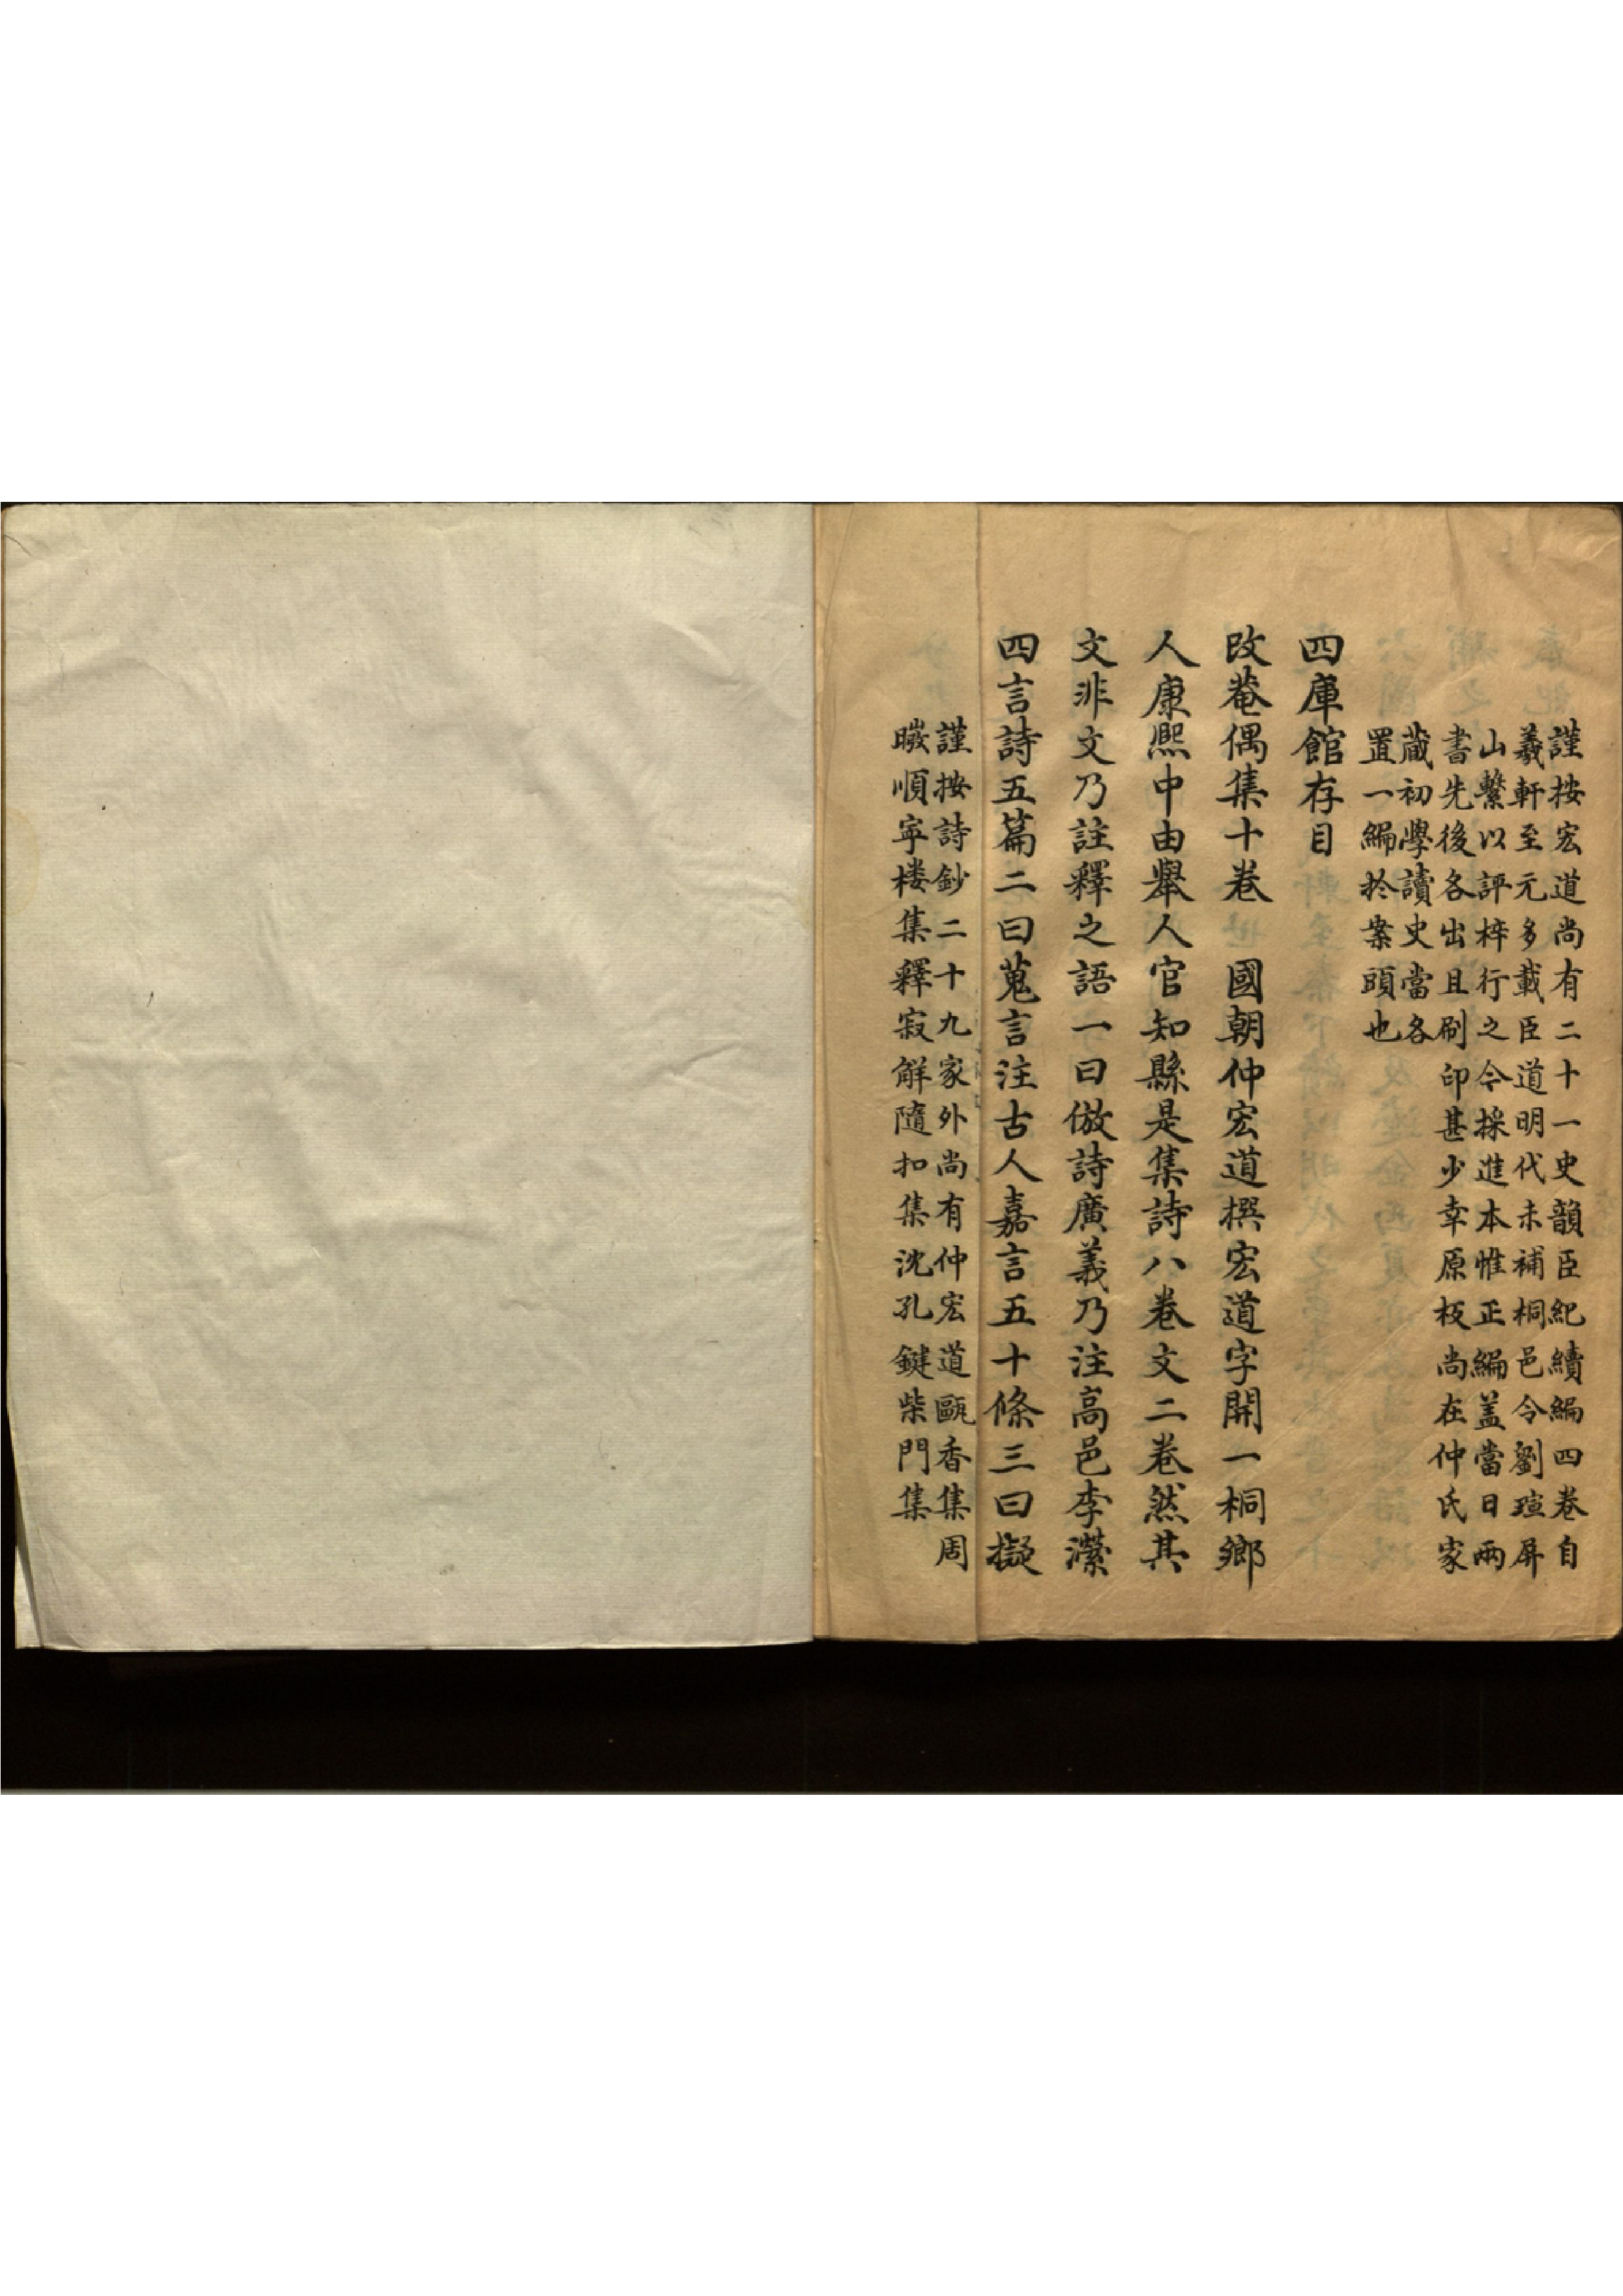 謹按宏道尚有二十一史韻臣紀續編四卷自
羲軒至元多載臣道明代未補桐邑令劉瑄屏
山繫以評梓行之令採進本惟正編盖當日兩
書先後各出且刷印甚少幸原板尚在仲氏家
藏初學讀史當各
置一編於案頭也
四庫館存目
改菴偶集十卷 國朝仲宏道撰宏道字開一桐鄉
人康熙中由舉人官知縣是集詩八卷文二卷然其
文非文乃註釋之語一曰倣詩廣義乃注高邑李灤
四言詩五篇二曰蒐言注古人嘉言五十條三曰擬
謹按詩鈔二十九家外尚有仲宏道甌香集周
曒順寜楼集釋寂觧隨扣集沈孔鍵柴門集